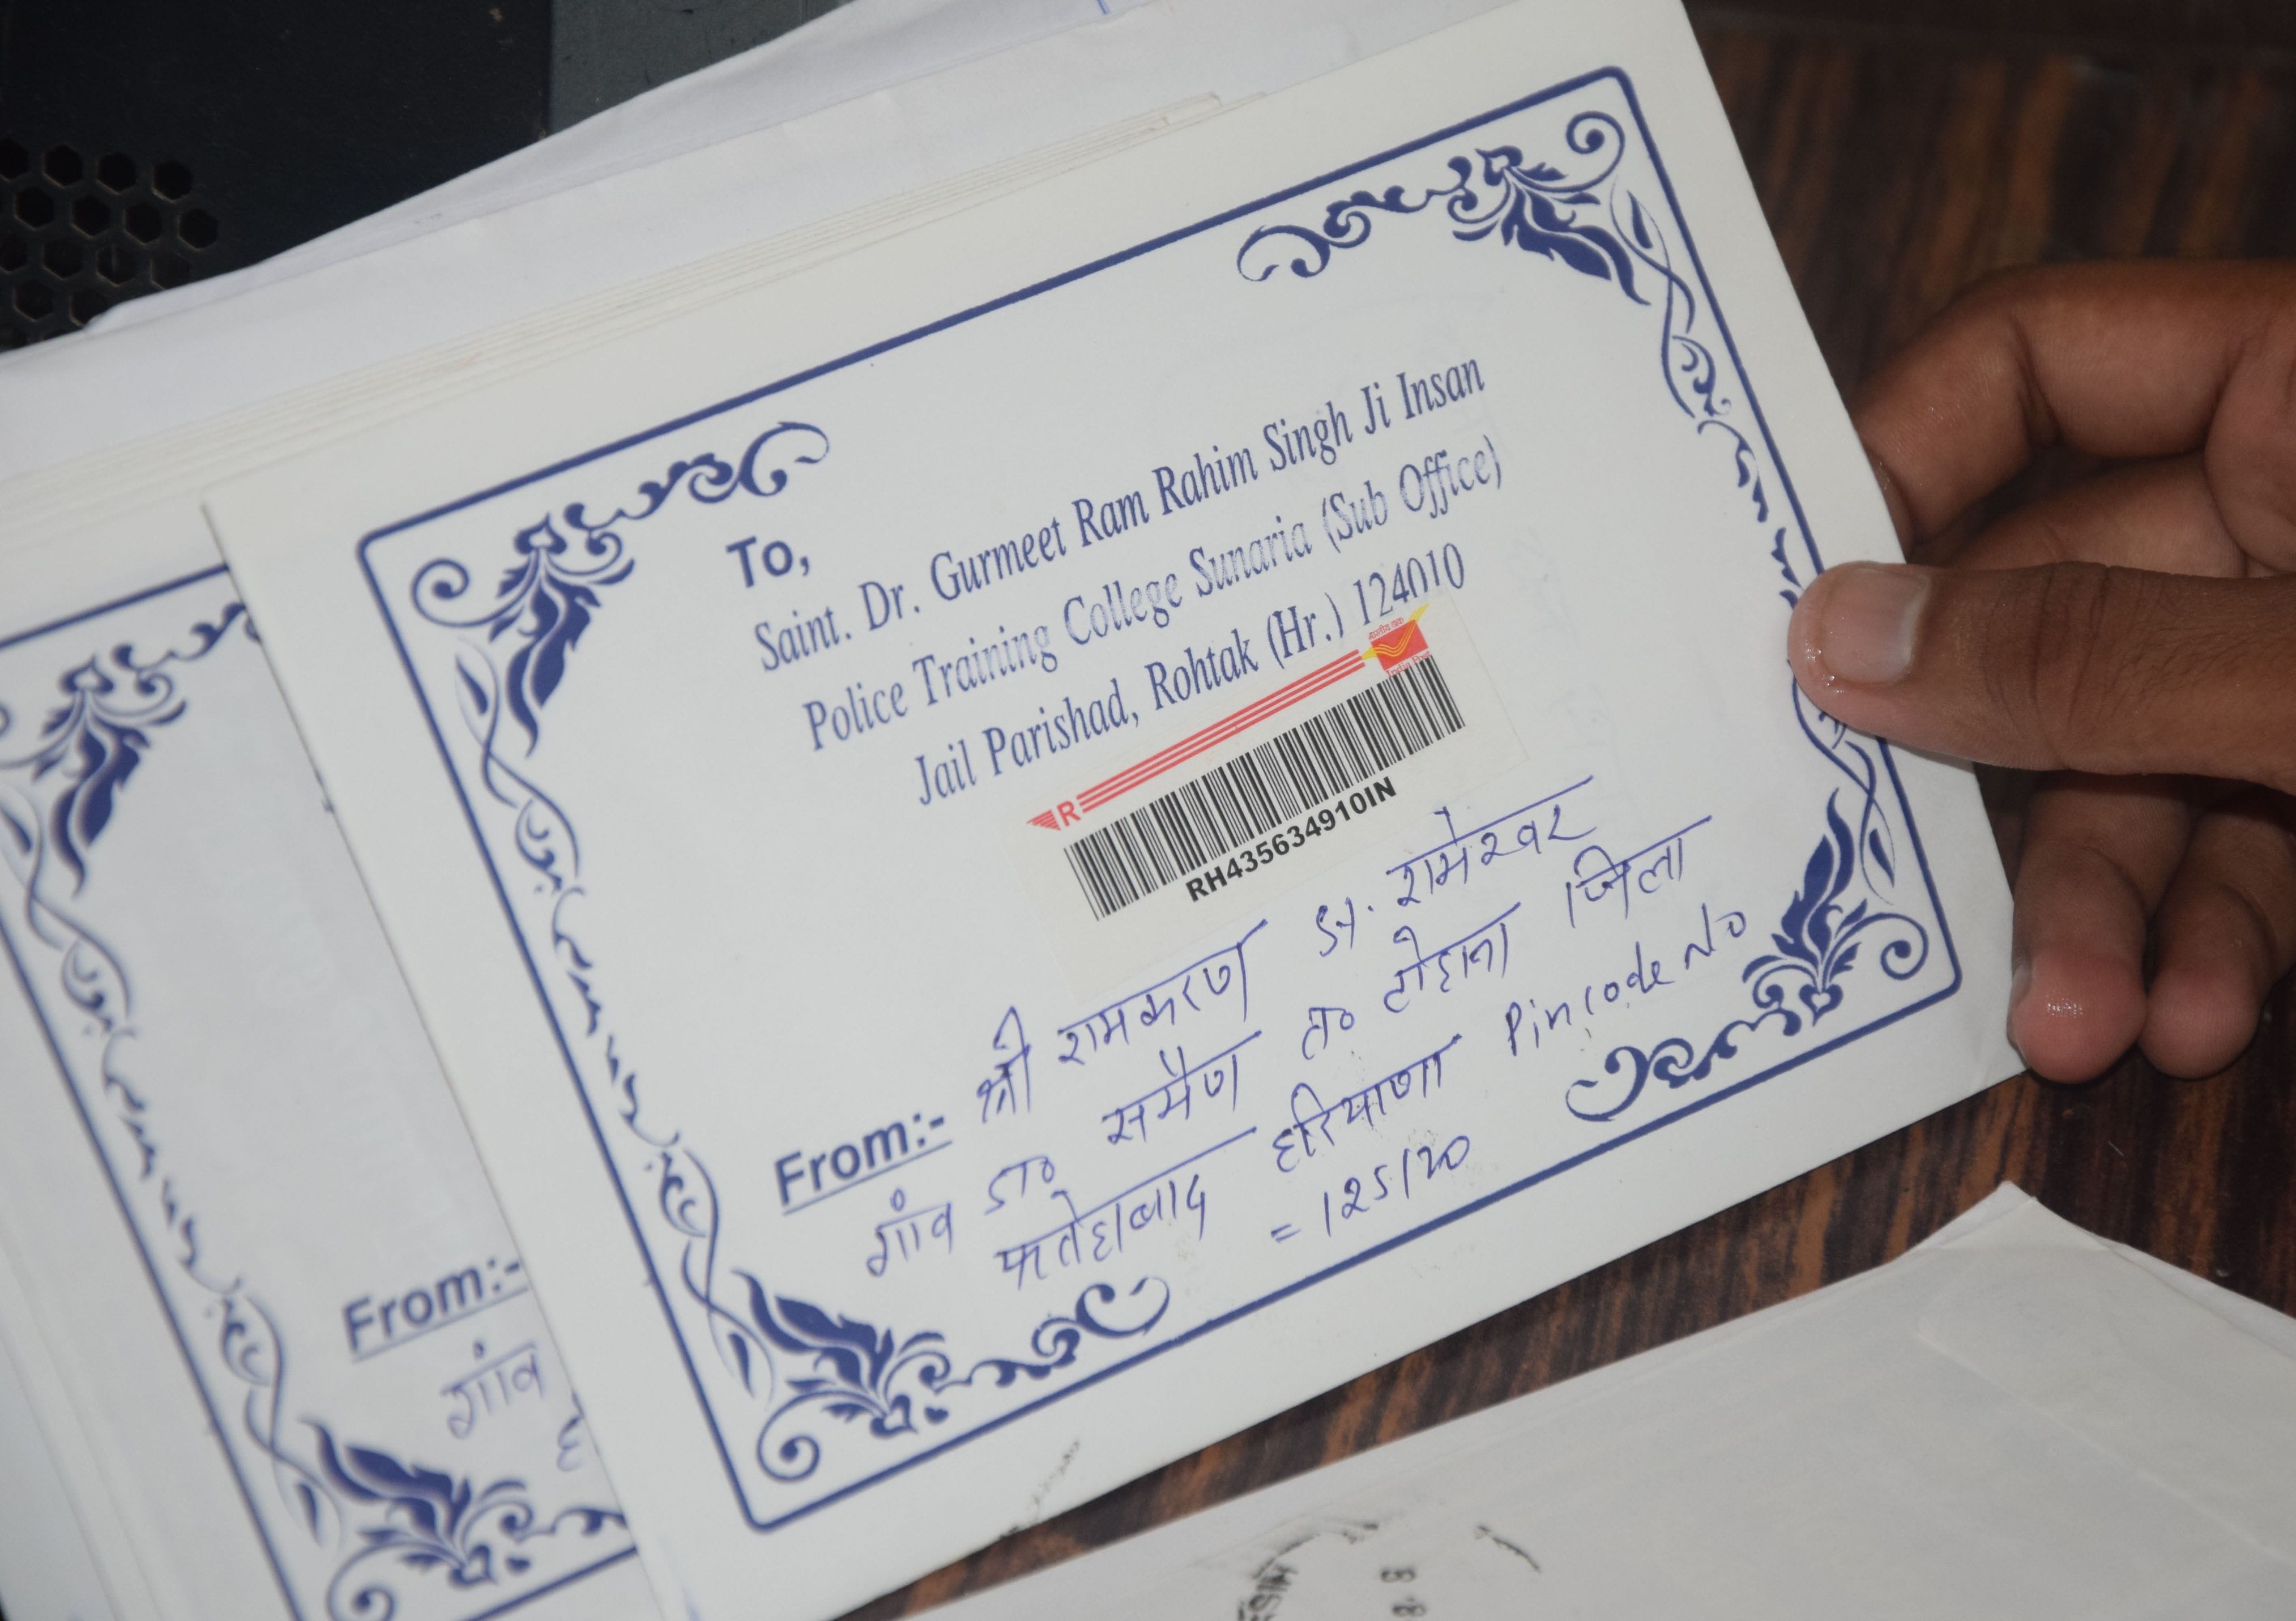 To,
Saint. Dr. Gurmeet Ram Rahim Singh Ji Insan
Police Training College Sunaria (Sub Office)
Jail Parishad, Rohtak (Hr.) 124010
भारतीय डाक
India Post
R
RH435634910IN
From:- श्री रामकरण S/. रामेश्वर
गांव डा० समैण त० टोहाना जिला
फतेहाबाद हरियाणा Pincode No
= 125120
From:-
गांव